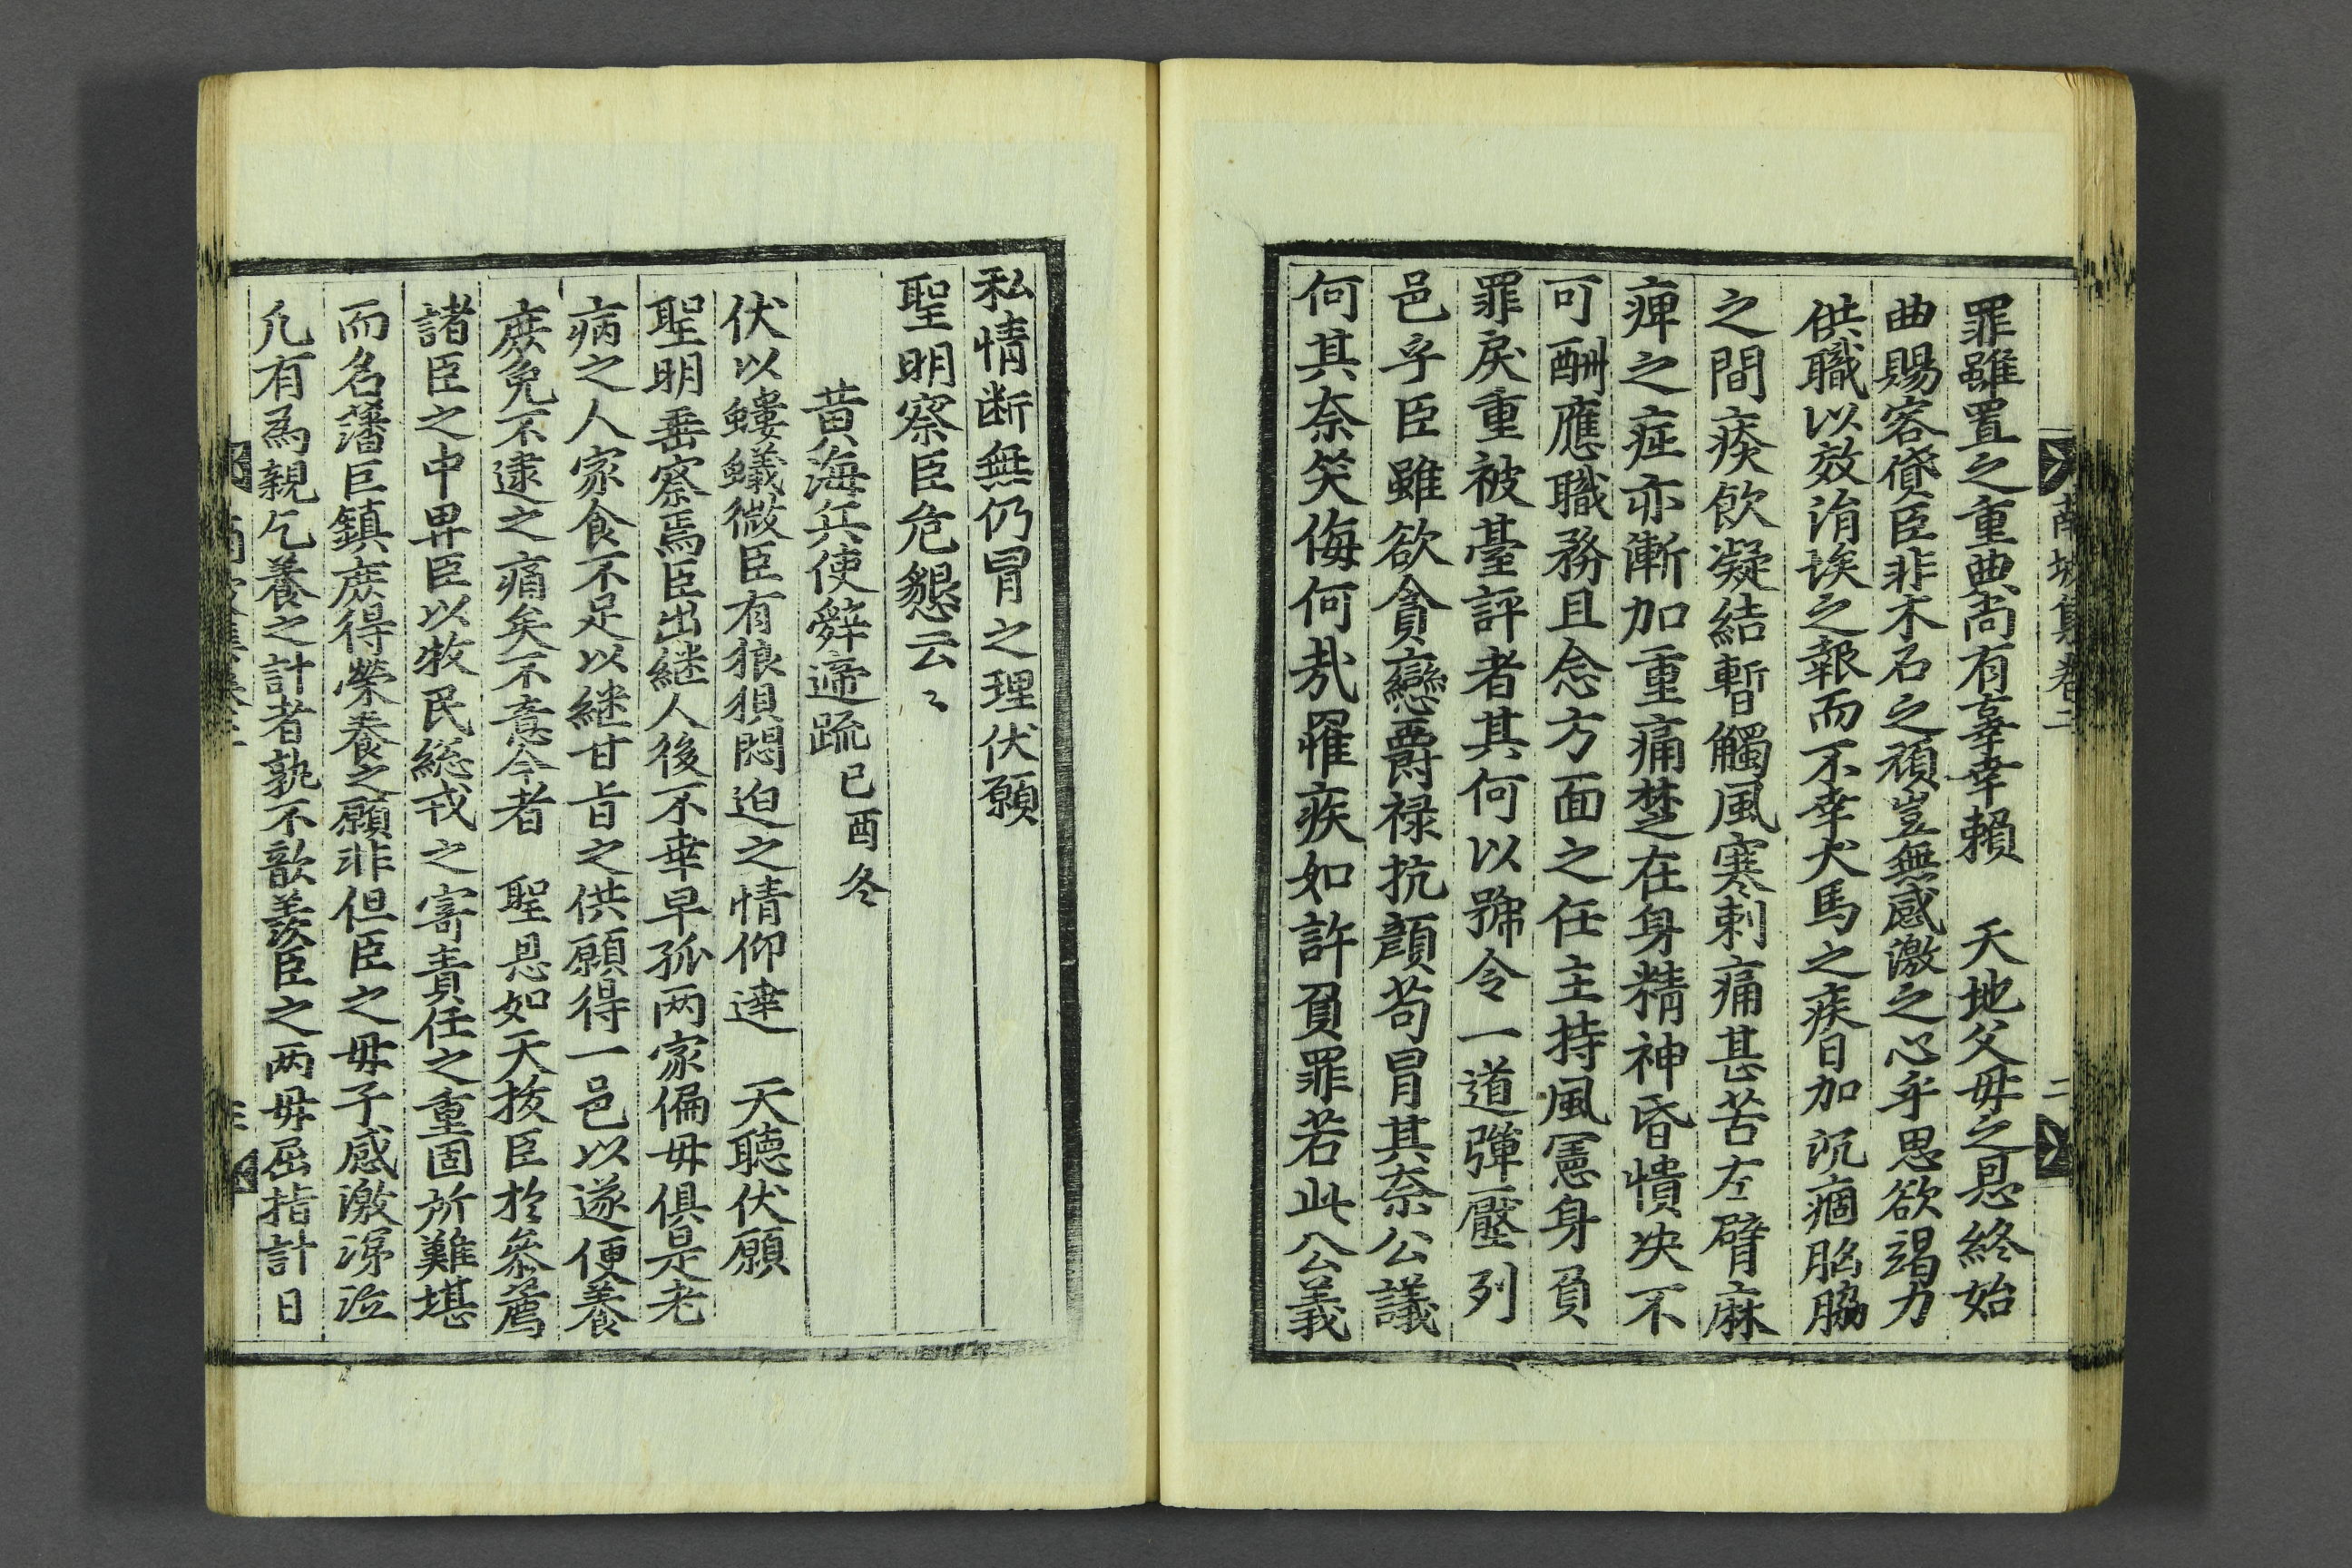 罪雖置之重典尚有辜幸賴　天地父母之恩終始
曲賜容貸臣非木石之頑豈無感激之心乎思欲竭力
供職以效涓埃之報而不幸犬馬之疾日加沉痼胸脇
之間痰飮凝結暫觸風寒刺痛甚苦左臂麻
痺之症亦漸加重痛楚在身精神昏憒决不
可酬應職務且念方面之任主持風憲身負
罪戾重被臺評者其何以號令一道彈壓列
邑乎臣雖欲貪戀爵祿抗顔苟冒其奈公議
何其奈笑侮何㢤罹疾如許負罪若此公義
私情断無仍冒之理伏願
聖明察臣危懇云〻
黄海兵使辭遞疏 己酉冬
伏以螻蟻微臣有狼狽悶迫之情仰達　天聽伏願
聖明垂察焉臣出継人後不幸早孤两家偏母俱是老
病之人家食不足以継甘旨之供願得一邑以遂便養
庶免不逮之痛矣不意今者　聖恩如天拔臣於叅薦
諸臣之中畀臣以牧民総戎之寄責任之重固所難堪
而名藩巨鎮庶得榮養之願非但臣之母子感激涕泣
凡有爲親乞養之計者孰不歆羨臣之两母屈指計日